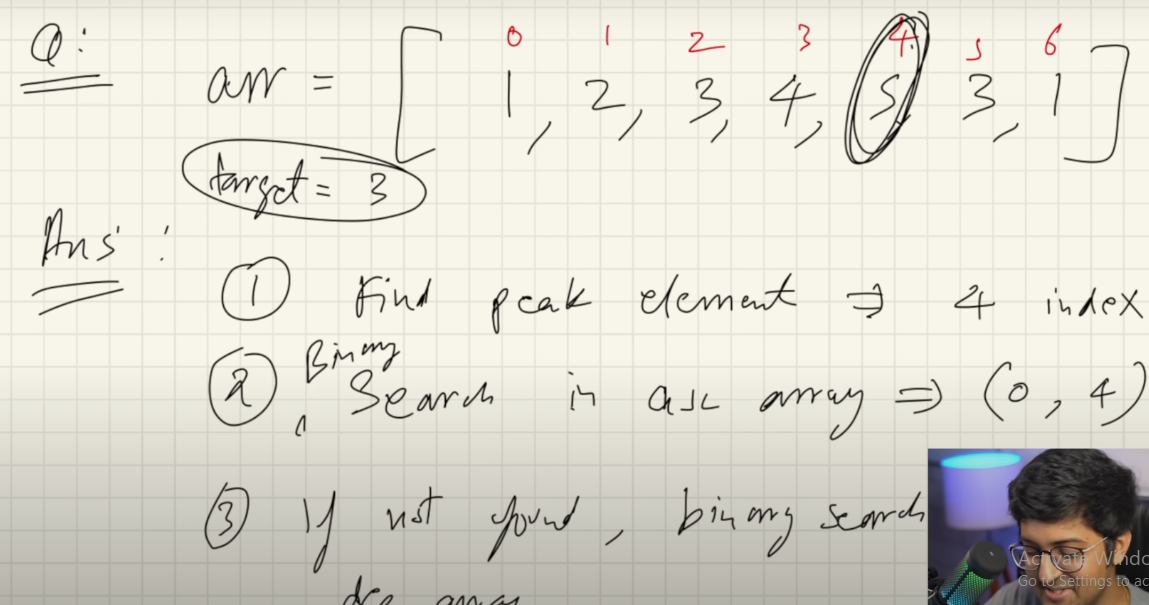 Q:
0 1 2 3 4 5 6
arr = [ 1, 2, 3, 4, 5, 3, 1 ]
target = 3
Ans :
① Find peak element ⇒ 4 index
② Binary Search in asc array ⇒ (0, 4)
③ If not found, binary search
Activate Windo
Go to Settings to ac